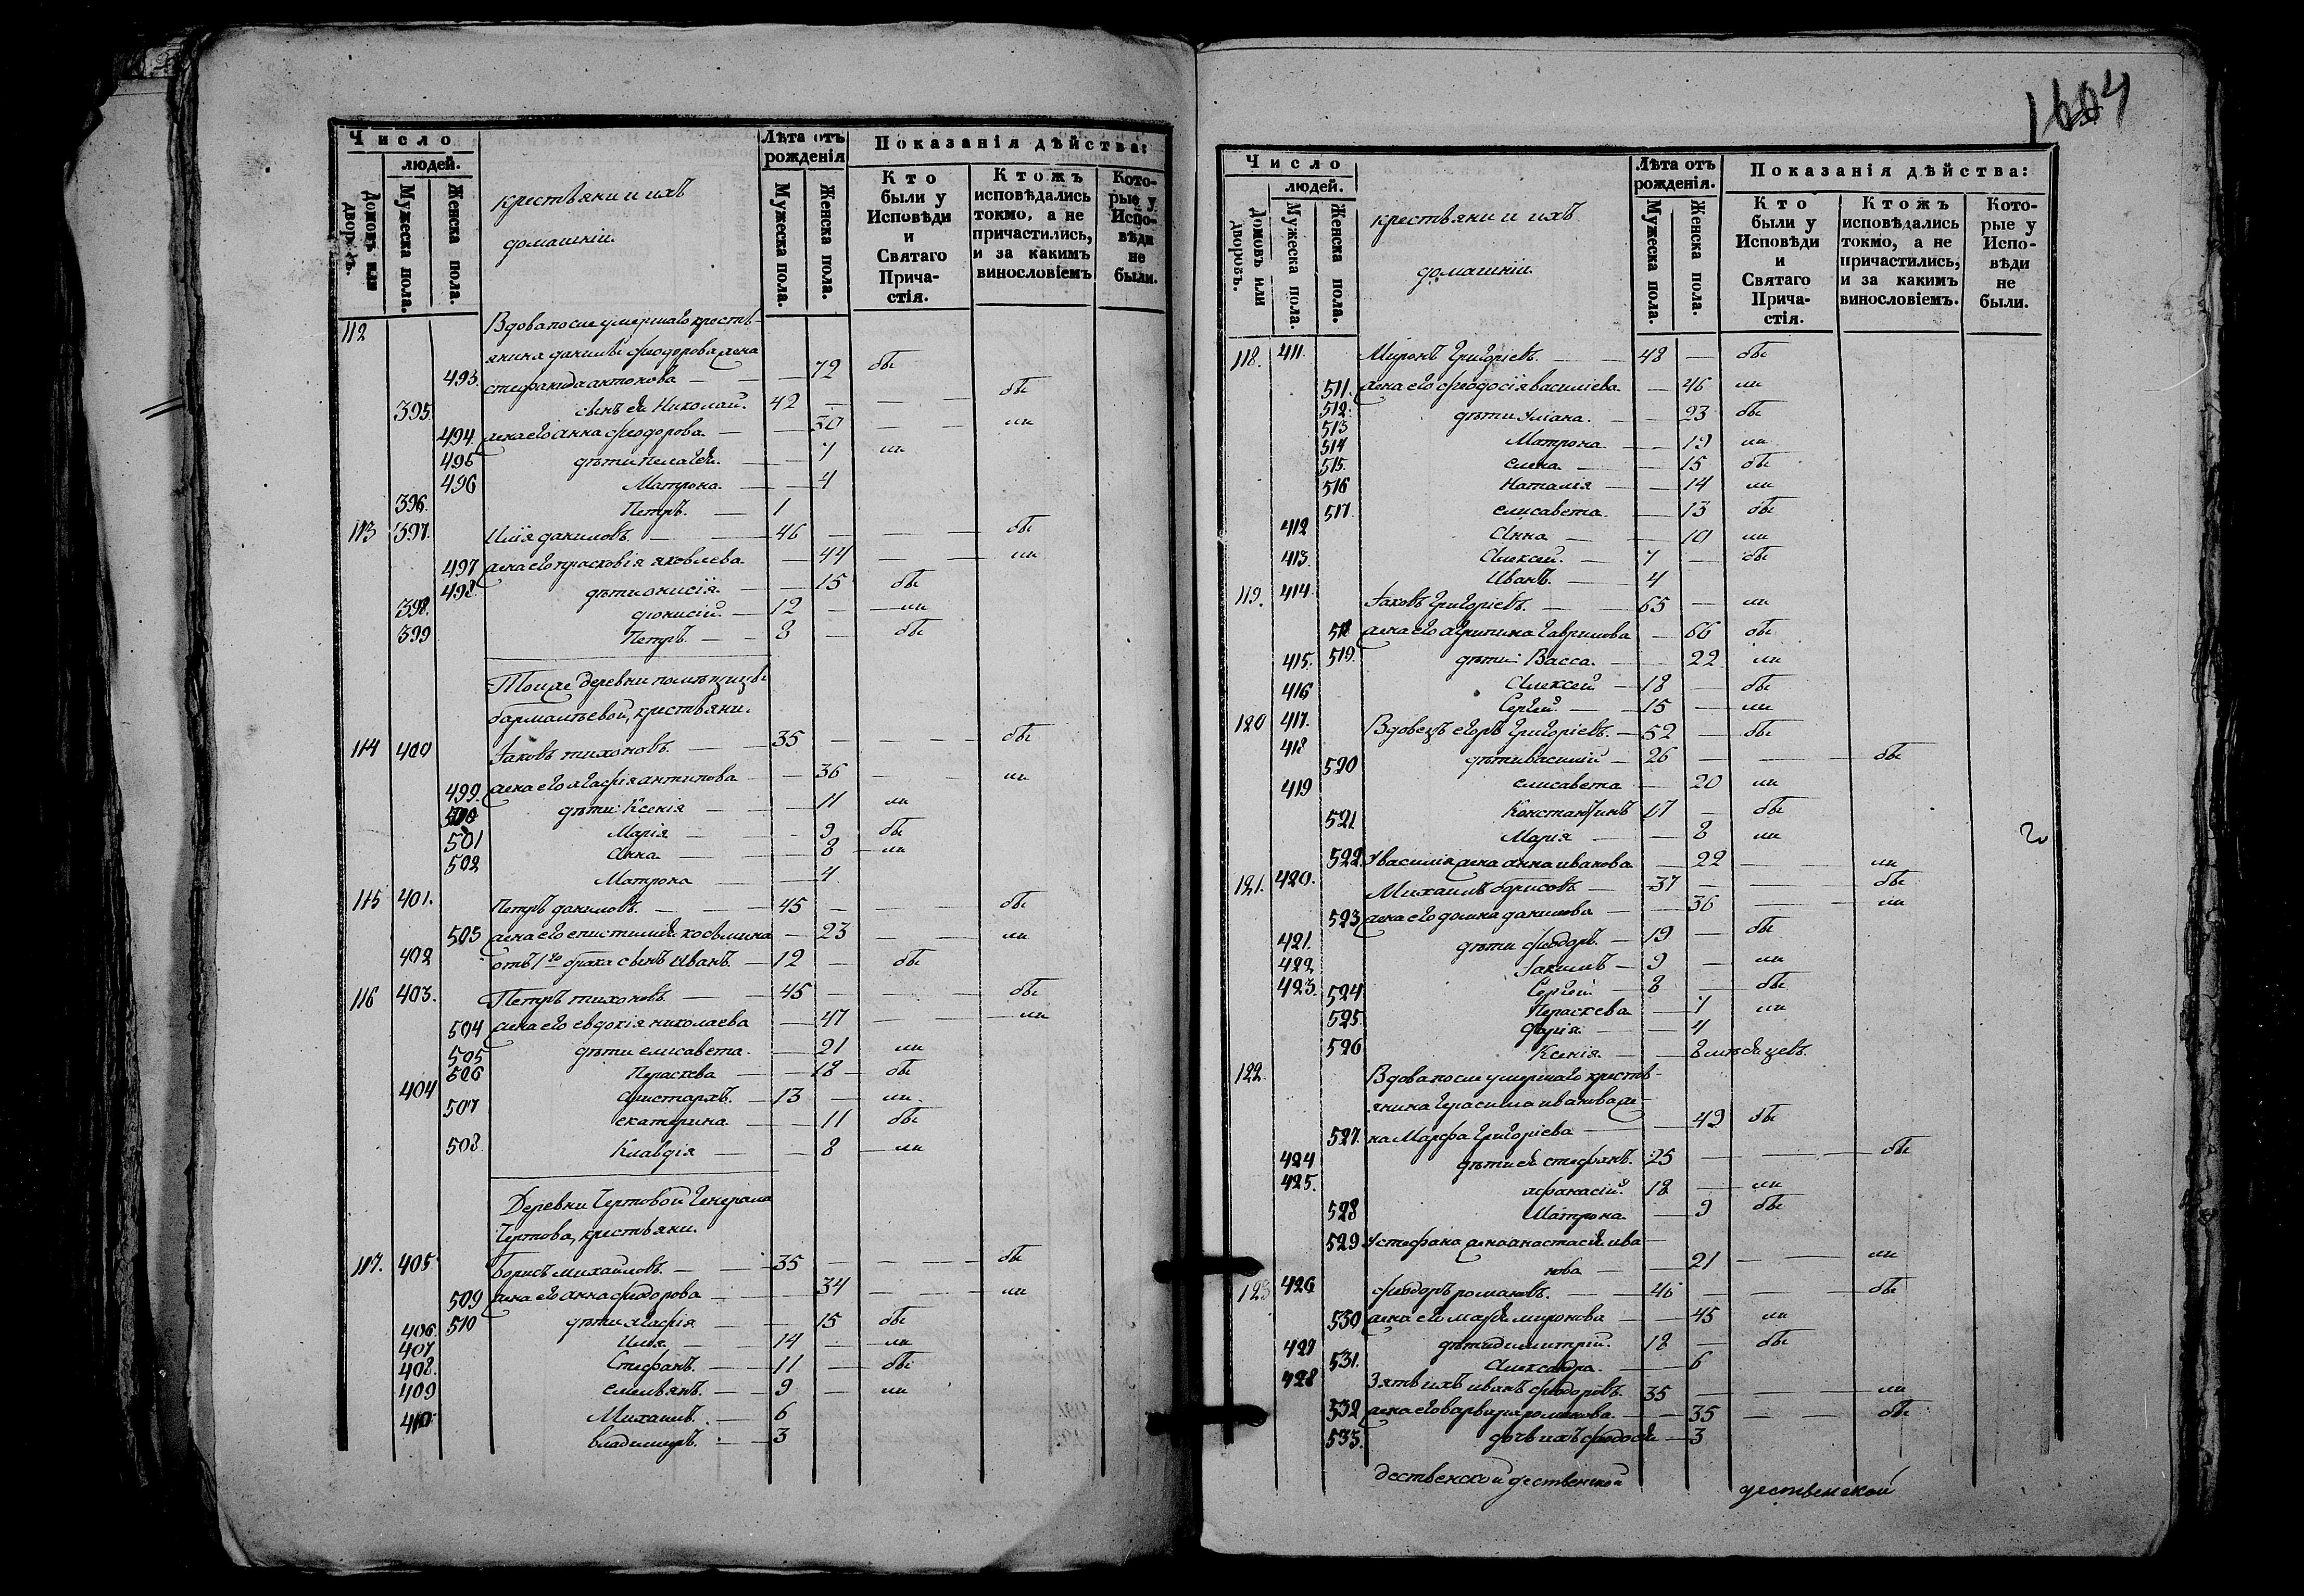 Число
людей.
Домовъ или дворовъ.
Мужеска пола.
Женска пола.
крестьяни и ихъ
домашніи.
Лѣта отъ рожденія
Мужеска пола.
Женска пола.
Показанія дѣйства:
Кто были у Исповѣди и Святаго Причастія.
Ктожъ исповѣдались токмо, а не причастились, и за какимъ винословіемъ
Которые у Исповѣди не были.
112 Вдова после умершаго кресть-
янина данилы феодорова жена
493. стефанида антонова — — 72 бы
395. сынъ ея Николай. 42 — — — бы
494. жена его анна феодорова — — 30 — — ли
495 дѣти пелагея. — — 7 ли
496 Матрона. — — 4
396. Петръ. — 1
113 397. Илія даниловъ. — 46 — — — бы
497 жена его прасковія яковлева. — 44 — — ли
498. дѣти онисія. — — 15 бы
398. діонисій. — 12 — ли
399 Петръ. — — 8 — бы
Тоиже деревни помѣщицы
бармалѣевой, крестьяни.
114 400 Іаковъ тихоновъ. — — 35 — — — бы
499. жена его агафія антипова — — 36 — — ли
500 дѣти: Ксенія — — 11 ли
501 Марія — — 9 бы
502 Анна — — 8 ли
Матрона — — 4
115 401. Петръ даниловъ. — — 45 — — — бы
503 жена его епистимия косьмина — 23 — — ли
402 отъ 1го брака сынъ Иванъ. — 12 — бы
116 403. Петръ тихоновъ. — — 45 — — — бы
504 жена его евдокія николаева — 47 — — ли
505 дѣти елисавета. — 21 ли
506 Параскева — — 18 — бы
404 Аристархъ. — 13 — ли.
507 екатерина — — 11 бы
508 Клавдія — — 8 — ли
Деревни Чертовой Генерала
Чертова, крестьяни.
117. 405. Борисъ михаиловъ. — — 35 — — — бы
509 жена его анна федорова — — 34 — — ли
510 дѣти агафія — — 15 бы
406. Илія. — — 14 — ли
407 Стефанъ. — — 11 — бы
408. емельянъ. — — 9 — ли
409 Михаилъ. — 6
410 владимиръ. — 3
1604
Число
людей.
Домовъ или дворовъ.
Мужеска пола.
Женска пола.
крестьяни и ихъ
домашніи.
Лѣта отъ рожденія.
Мужеска пола.
Женска пола.
Показанія дѣйства:
Кто были у Исповѣди и Святаго Причастія.
Ктожъ исповѣдались токмо, а не причастились, и за какимъ винословіемъ.
Которые у Исповѣди не были.
118. 411. Миронъ Григоріевъ. — — 48 — бы
511. жена его феодосія василіева — 46 ли
512. дѣти Уліана. — — 23 бы
513 Матрона. — — 19 ли
514 елена — — 15 бы
515. Наталія — — 14 ли
516 елисавета. — — 13 бы
517. Анна — — 10 ли
412 Алексей. — 7 — бы
413. Иванъ. — 4
119. 414. Іаковъ Григоріевъ. — — 65 — ли
518 жена его агрипина Гаврилова — 66 бы
519. дѣти: Васса. — — 22 ли
415. Алексей — 18 — бы
416 Сергей. — — 15 — ли
120 417. Вдовецъ егоръ Григоріевъ. — 52 — бы
418 дѣти василий — 26 — — — бы
520 елисавета — 20 ли
419 Константинъ 17 — бы
521 Марія — — 8 ли
522. У василія жена анна иванова — 22 — — ли
121. 420. Михаилъ борисовъ — 37 — — — бы
523 жена его домна данилова — — 36 — — ли
421. дѣти феодоръ. — 19 — бы
422 Іакимъ — 9 — ли
423. Сергей — 8 — бы
524 Параскева — 7 ли
525. Дарія. — — 4
526 Ксенія. — — 8 мѣсяцевъ.
122. Вдова после умершаго кресть-
янина Герасима иванова же-
527. на Марфа Григоріева — — 49 бы
424 дѣти ея стефанъ. 25 — — — бы
425. афанасій. 18 — ли
528 Матрона — 9 бы
529 У стефана жена анастасия ива
нова — — 21 — — ли
123 426 феодоръ романовъ. — — 46 — — — бы
530 жена его марфа миронова — — 45 ли
427 дѣти димитрий. 18 — бы
531. Александра. — — 6
428 Зять ихъ иванъ феодоровъ. 35 — — — ли
532 жена его варвара романова. — — 35 — — бы
533. дочь ихъ феодосія — 3